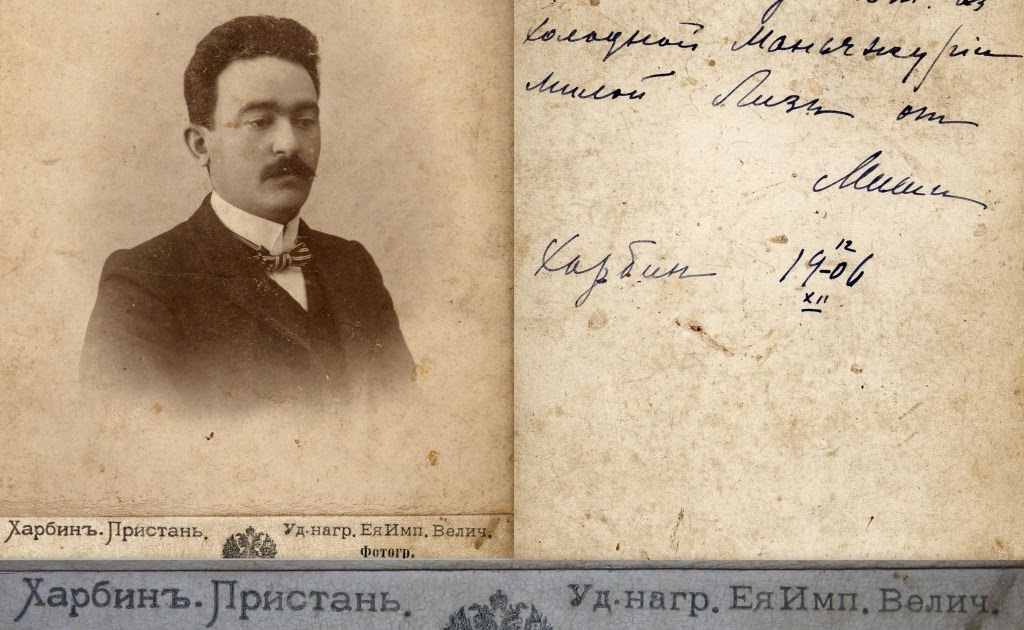 холодной Маньчжуріи
милой Лизы от
Миши
Харбин 12
19-06
XII
Харбинъ. Пристань. Уд. нагр. Ея Имп. Велич.
Фотогр.
Харбинъ. Пристань. Уд. нагр. Ея Имп. Велич.